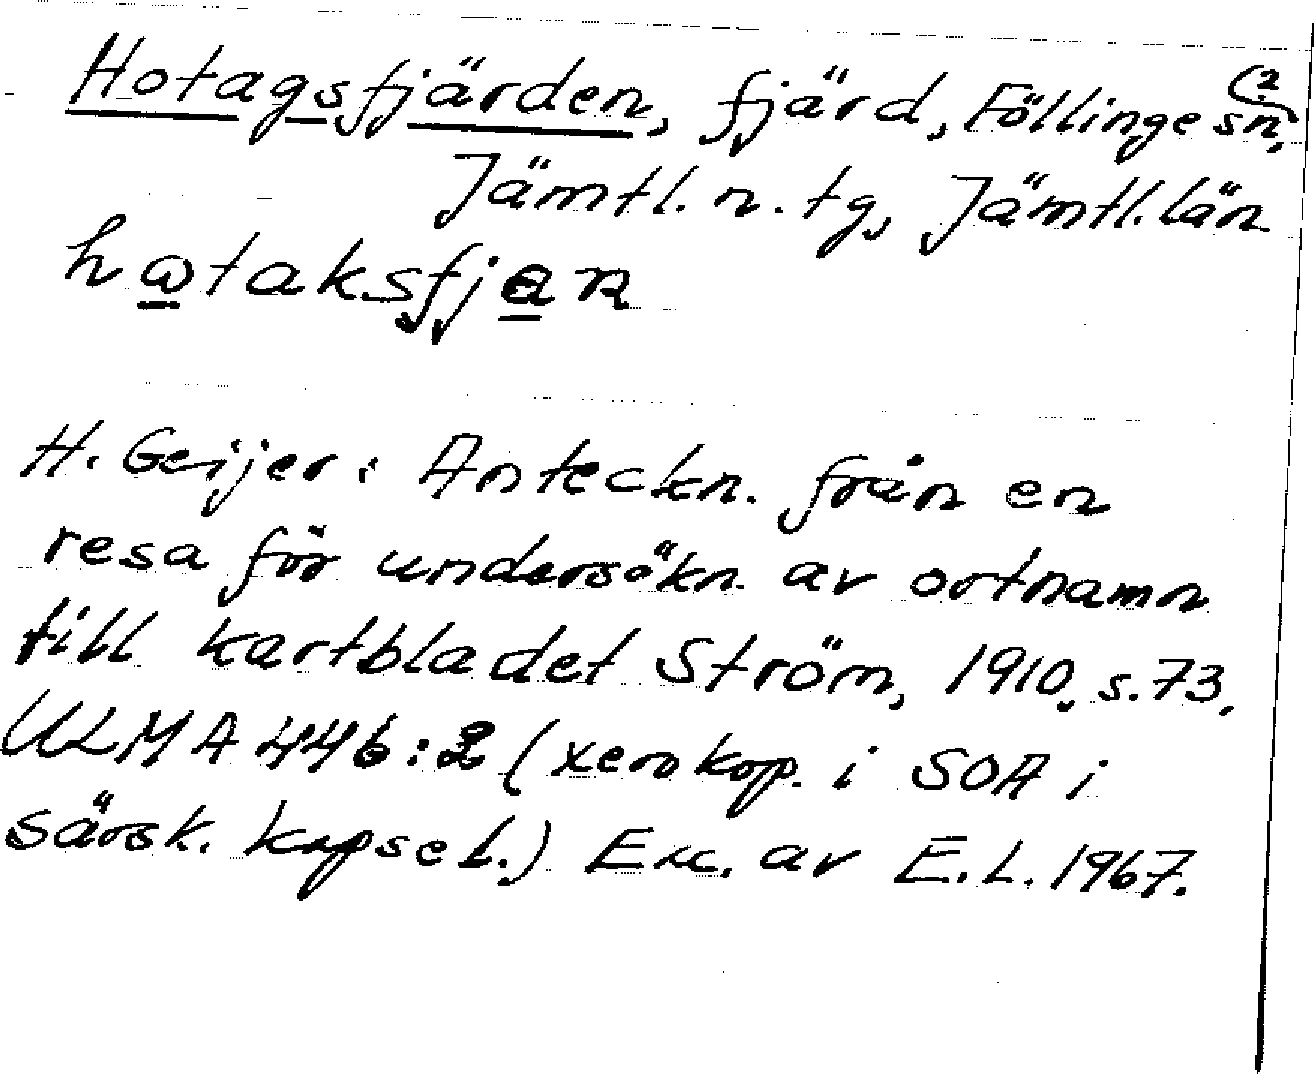 Hotagsfjärden, fjärd, Föllinge sn, (2
Jämtl. n. tg, Jämtl. län
hωtaksfjan
H. Geijer: Anteckn. från en
resa för undersökn. av ortnamn
till kartbladet Ström, 1910, s. 73.
ULMA 446:2 (xerokop. i SOA i
särsk. kapsel.) Exc. av E.L. 1967.